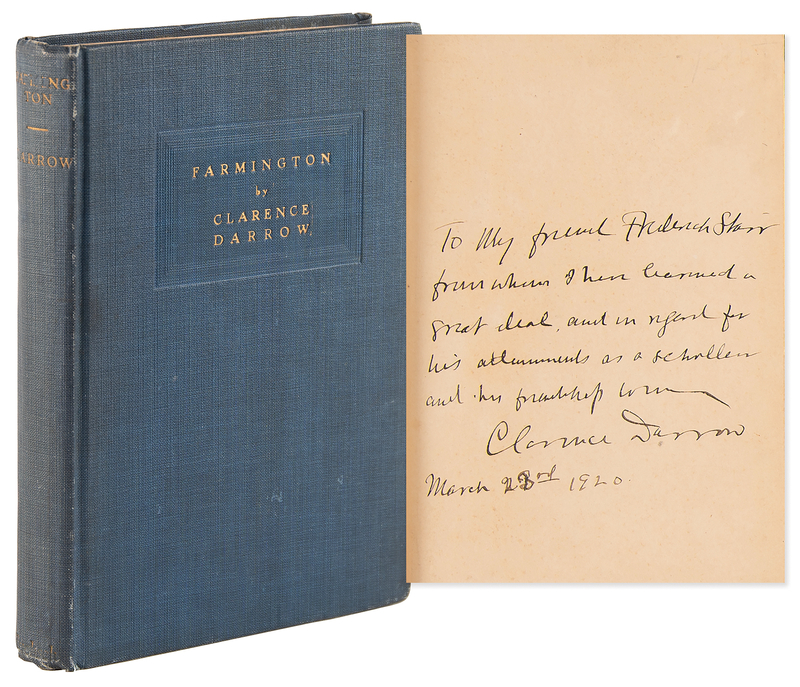 TON
ARROW
FARMINGTON
by
CLARENCE
DARROW
To My friend Frederick Starr
from whom I have learned a
great deal, and in regard for
his attainments as a scholar
and his friendship
Clarence Darrow
March 23rd 1920.